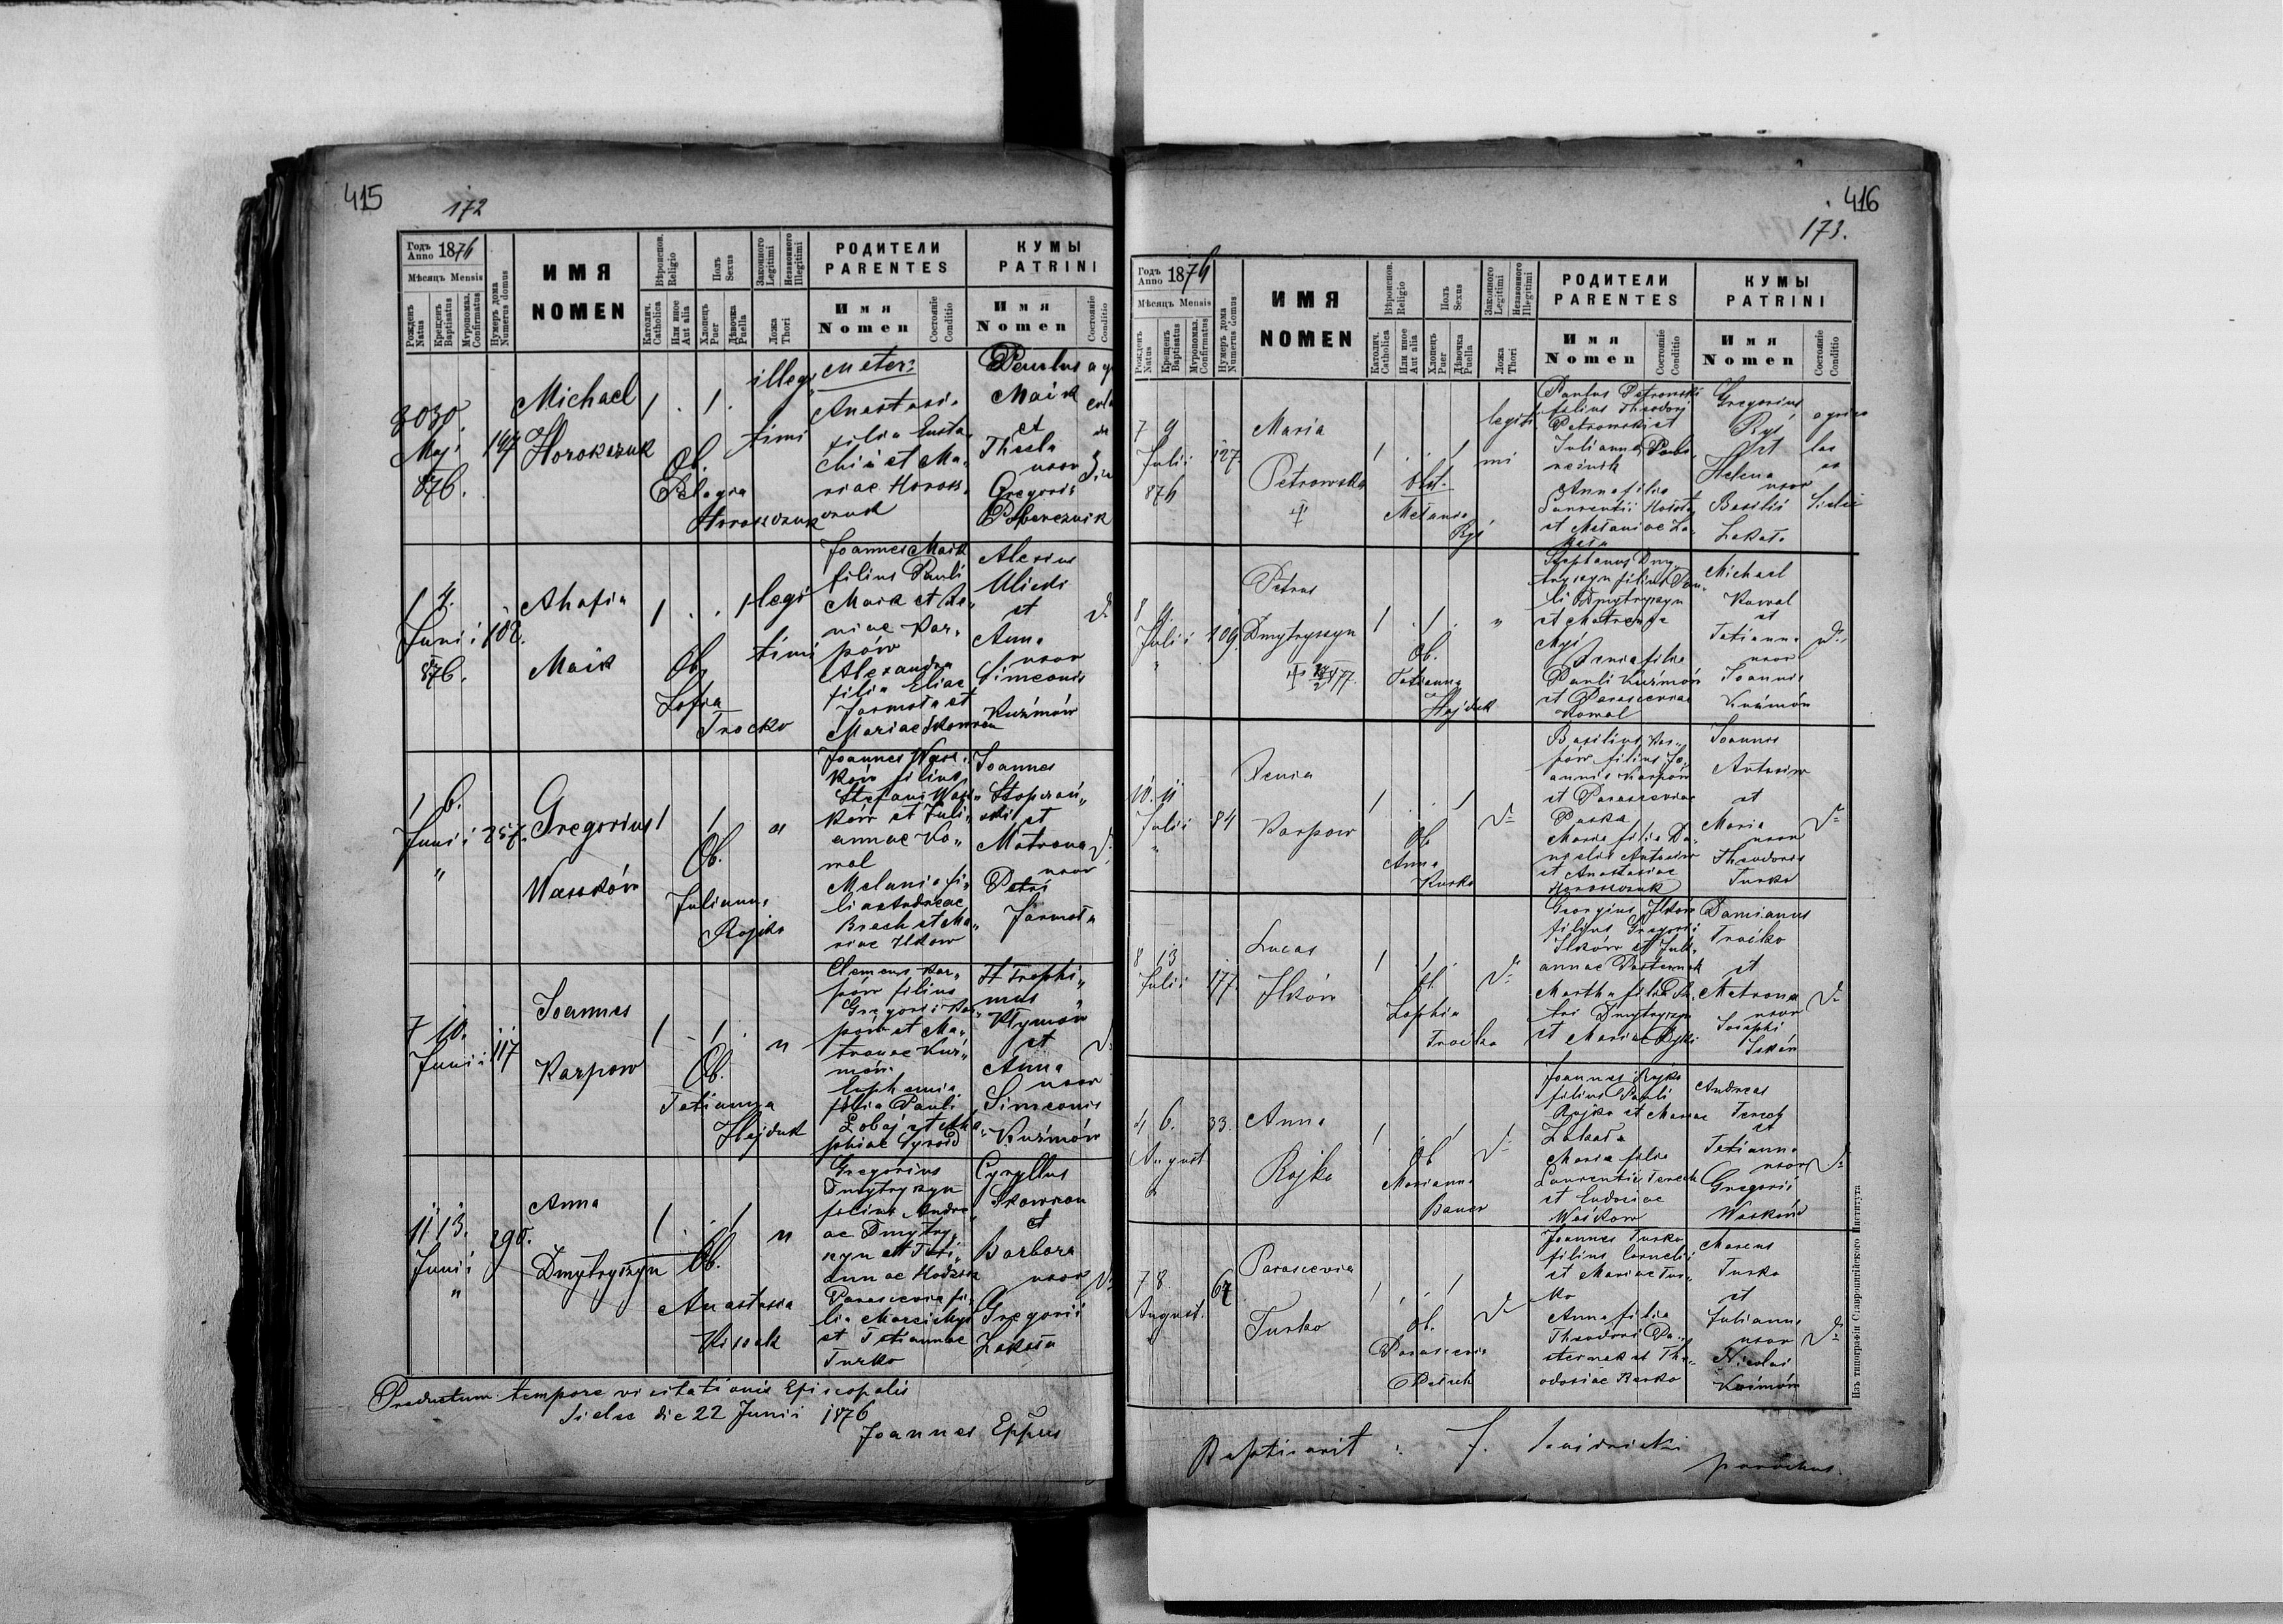 415
172
Годъ Anno 1876
Мѣсяцъ Mensis
Рожденъ Natus
Крещенъ Baptisatus
Муропомаз. Confirmatus
Нумеръ дома Numerus domus
ИМЯ
NOMEN
Вѣроиспов. Religio
Католич. Catholica
Или иное Aut alia
Полъ Sexus
Хлопецъ Puer
Дѣвочка Puella
Законного Legitimi
Незаконного Illegitimi
Ложа Thori
РОДИТЕЛИ
PARENTES
Имя
Nomen
Состояніе Conditio
КУМЫ
PATRINI
Имя
Nomen
Состояніе Conditio
30 30.
Maji
876.
147
Michael
Horoszczuk
1 . 1 .
Ob.
Pelagia
Horoszczuk
illegi
timi
Mater:
Anastasia
filia Eusta„
chii et Ma„
riae Horosz„
czuk
Paulus
Maik
et
Thecla
uxor
Gregorii
1 4.
Junii
876.
108.
Ahafia
Maik
1 . . 1
Ob.
Zofia
Trocko
legi
timi
Joannes Maik
filius Pauli
Maik et Xe„
niae Kar„
pów
Alexandra
filia Eliae
Jarmoła et
Mariae Skowron
Alexius
et
Anna
uxor
Simeonis
Kuźmów
1 6.
Junii
„
257.
Gregorius
Waskków
1 . 1
Ob.
Julianna
Rojko
„
Joannes Was„
ków filius
Stefani Was„
ków et Juli„
annae Ko„
wal
Melania fi„
lia Andreae
Brech et Ma„
riae Ilkow
Joannes
et
Matrona
uxor
Petri
Jarmoła
7 10.
Junii
117
Joannes
Karpow
1 . 1 .
Ob.
Tatianna
Hajduk
„
Clemens Kar„
pów filius
Gregorii Kar„
pów et Ma„
tronae Kuź„
mów
Euphemia
filia Pauli
Trophi„
mus
Klymów
et
Anna
uxor
Simeonis
Kuźmów
11 13.
Junii
„
290.
Anna
Dmytryszyn
1 . . 1
Ob.
Anastasia
„
Gregorius
Dmytryszyn
filius Andre„
ae Dmytry„
szyn et Tati„
annae
Parascevia fi„
lia
et Tatiannae
Turko
Cyryllus
Skowron
et
Barbara
uxor
Gregorii
Łakota
Productum tempore visitationis Episcopalis
Sielec die 22 Junii 1876
Joannes Eppus
416
173.
Годъ Anno 1876
Мѣсяцъ Mensis
Рожденъ Natus
Крещенъ Baptisatus
Муропомаз. Confirmatus
Нумеръ дома Numerus domus
ИМЯ
NOMEN
Вѣроиспов. Religio
Католич. Catholica
Или иное Aut alia
Полъ Sexus
Хлопецъ Puer
Дѣвочка Puella
Законного Legitimi
Незаконного Illegitimi
Ложа Thori
РОДИТЕЛИ
PARENTES
Имя
Nomen
Состояніе Conditio
КУМЫ
PATRINI
Имя
Nomen
Состояніе Conditio
7 9
Julii
876
127.
Maria
Petrowska
1 . . 1
Obst.
Melania
Ryś
legiti
mi
Paulus Petrowski
filius Theodori
Petrowski et
Julianna
Anna filia
Laurentii
et Melaniae Ła„
kota
Gregorius
Ryś
et
Helena
uxor
Basilii
Łakota
agrico
lae
in
Sielec
8 9.
Julii
„
109.
Petrus
Dmytryszyn
1 . 1 .
Ob.
Tatianna
Hajduk
„
Stephanus Dmy„
tryszyn filius Pau„
li Dmytryszyn
et Matronae
Xenia filia
Pauli Kuźmów
et Parasceviae
Kowal
Michael
Kowal
et
Tatianna
uxor
Joannis
Kuźmów
10. 11
Julii
„
84
Xenia
Karpow
1 . . 1
Ob.
Anna
Kusko
Basilius Kar„
pów filius Jo„
annis Karpow
et Parasceviae
Maria filia Da„
nielis Antoniw
et Anastasiae
Horoszczuk
Joannes
Antoniw
et
Maria
uxor
Theodori
Turko
8 13
Julii
177.
Lucas
Ilków
1 . 1 .
Ob.
Zophia
Troćko
Georgius Ilków
filius Gregorii
Ilków et Juli„
annae Pasternak
Martha filia Pe„
tri Dmytryszyn
et Mariae
Damianus
Troćko
et
Matrona
uxor
Josephi
Ilków
4 6.
August
33.
Anna
Rojko
1 . . 1
Ob.
Marianna
Bauer
Joannes Rojko
filius Pauli
Rojko et Mariae
Łakota
Maria filia
Laurentii Terech
et Eudociae
Waśkow
Andreas
Terech
et
Tatianna
uxor
Gregorii
Waśków
7 8.
August.
„
67
Parascevia
Turko
1 . . 1
Ob.
Parascevia
Joannes Turko
filius Cornelii
et Mariae Tur„
ko
Anna filia
Theodori Pa„
sternak et The„
odosiae
Marcus
Turko
et
Julianna
uxor
Nicolai
Kuźmów
Baptisavit :
parochus.
Изъ типографіи Ставропигійского Института